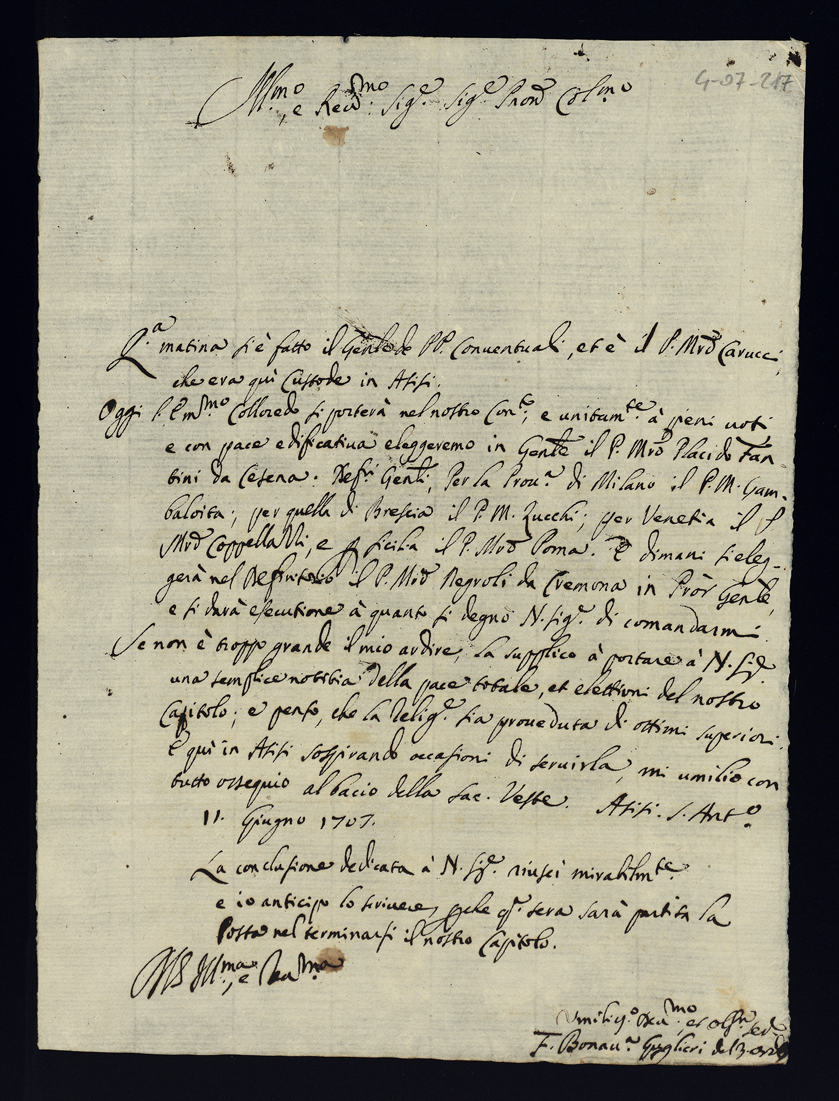 4-07-217
Illmo, e Reudmo: Sigre Sigre Pron Colmo
Qa matina si è fatto il Genle de PP. Conuentuali, et è il P. Mro Carucci,
che era quì Custode in Asisi.
Oggi l'Emmo Colloredo si porterà nel nostro Conto, e unitamte à pieni uoti
e con pace edificatiua eleggeremo in Genle il P. Mro Placido Fan
tini da Cesena. Genli, Per la Proua di Milano il P. M. Gam-
baloita; per quella di Brescia il P. M. Zucchi; per Venetia il P
Mro Coppellotti, e p Sicilia il P. Mro Poma. E dimani si eleg-
gerà nel Refritorio il P. Mro Negroli da Cremona in Pror Genle,
e si darà esecutione à quanto si degnò N. Sigre di comandarmi.
Se non è troppo grande il mio ardire, la supplico à portare à N. Sigre
una semplice notitia della pace totale, et elettioni del nostro
Capitolo; e penso, che la Religne sia proueduta di ottimi superiori.
E quì in Asisi sospirando occasioni di seruirla, mi umilio con
tutto ossequio al bacio della Sac. Veste. Asisi. S. Anto
11. Giugno 1707.
La conclusione dedicata à N. Sigre riuscì mirabilmte.
e io anticipo lo scriuere, pche qta sera sarà partita la
Posta nel terminarsi il nostro Capitolo.
VS Illma, e Reuma
Umiliso Deumo: et Obb Serd
F. Bonaua